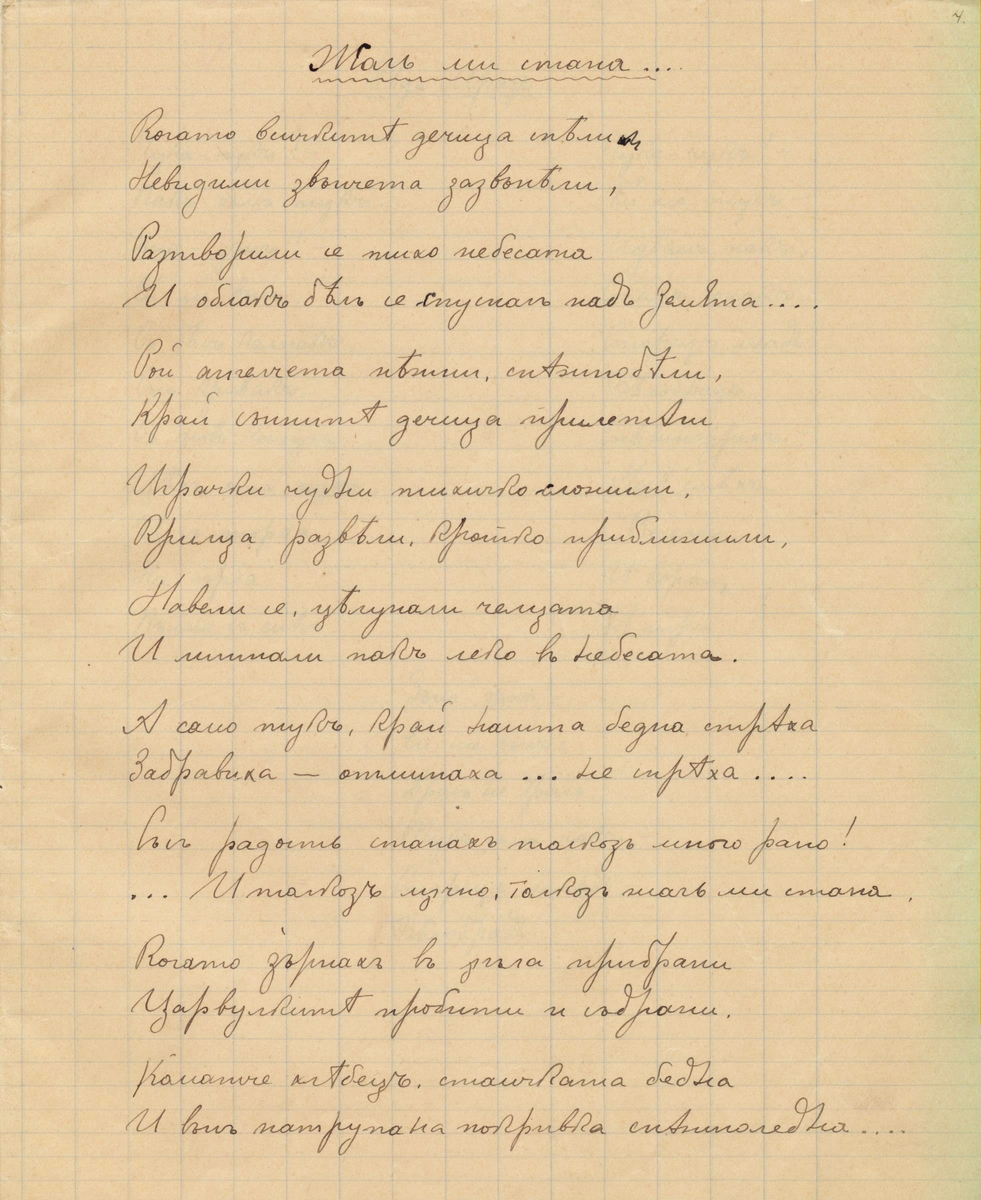 4.
Жаль ми стана ....
Когато всичкитѣ дечица спѣли
Невидими звънчета зазвънѣли,
Разтворили се тихо небесата
И облакъ бѣлъ се спуснал надъ Земята....
Рой ангелчета нѣжни, снѣжнобѣли,
Край съннитѣ дечица прилетѣли
Играчки чудни тихичко сложили,
Крилца развѣли, кротко приближили,
Навели се, цѣлунали челцата
И литнали пакъ леко въ небесата.
А само тукъ, край нашта бедна стрѣха
Забравиха — отминаха ... не спрѣха ....
Съсъ радость станахъ толкозъ много рано!
... И толкозъ мъчно, толкозъ жаль ми стана,
Когато зърнахъ въ ъгъла прибрани
Цървулкитѣ пробити и съдрани,
Коматче хлѣбецъ, стаичката бедна
И вънъ натрупана покривка снѣжноледна....